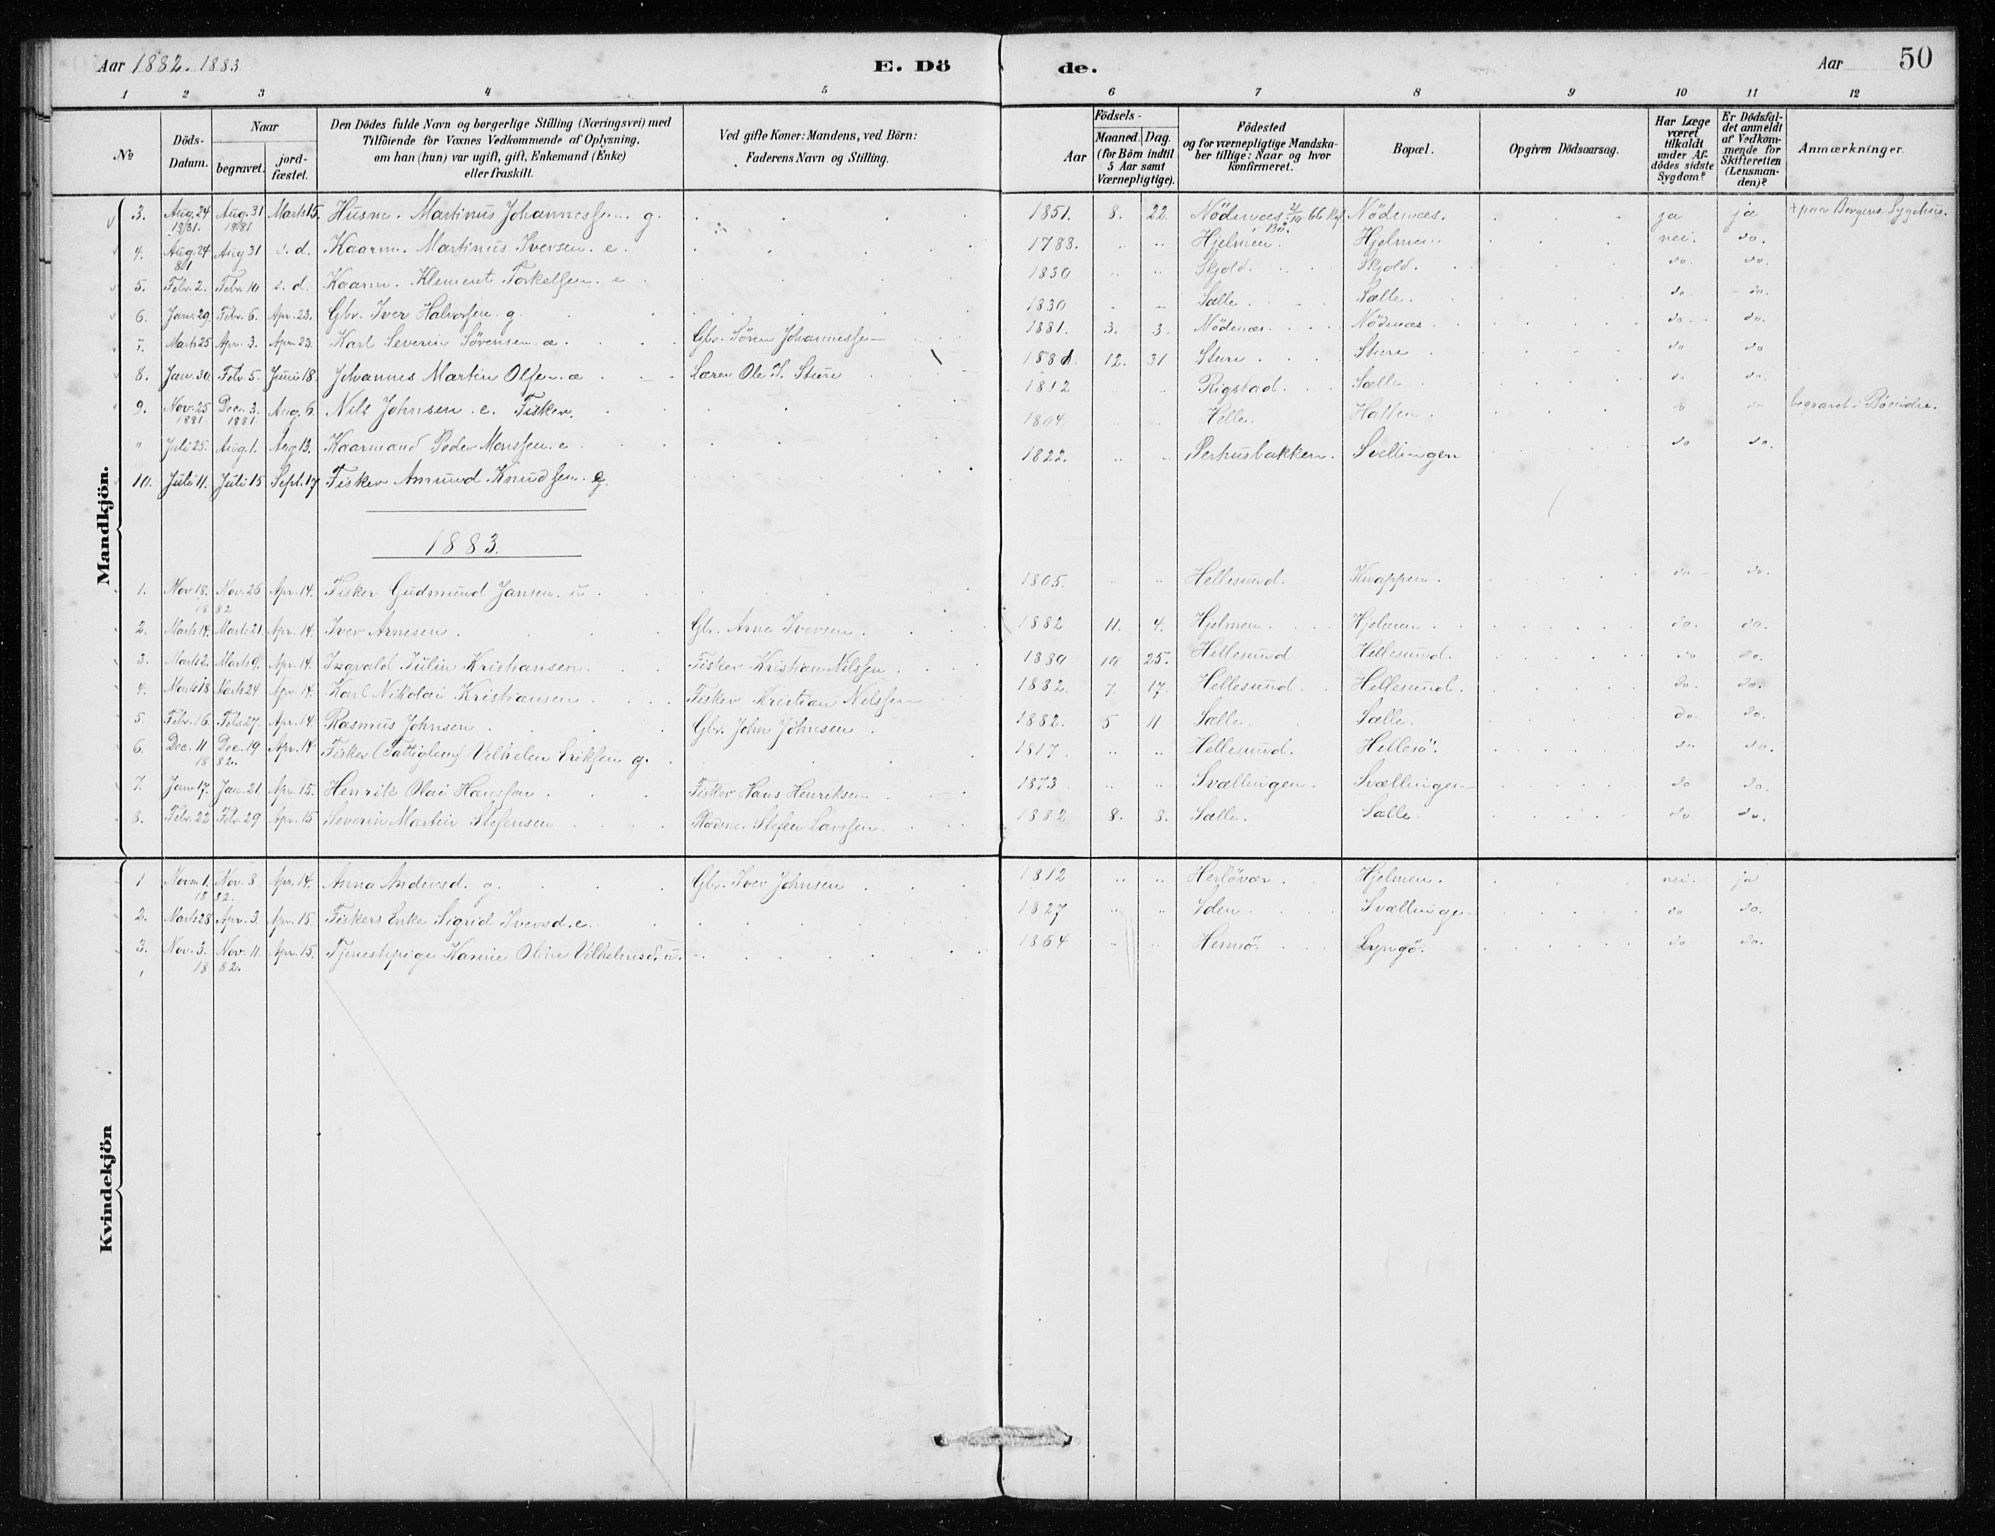 Aar 1882. 1883 E. Dö de. Aar 50
1 2 3 4 5 6 7 8 9 10 11 12
No
Döds-Datum.
Naar
begravet.
jord-fæstet.
Den Dödes fulde Navn og borgerlige Stilling (Næringsvei) med
Tilföiende for Voxnes Vedkommende af Oplysning,
om han (hun) var ugift, gift, Enkemand (Enke)
eller fraskilt.
Ved gifte Koner: Mandens, ved Börn:
Faderens Navn og Stilling.
Födsels-
Aar
Maaned. Dag.
(for Börn indtil
5 Aar samt
Værnepligtige).
Födested
og for værnepligtige Mandska-
ber tillige: Naar og hvor
konfirmeret.
Bopæl.
Opgiven Dödsaarsag.
Har Læge
været
tilkaldt
under Af-
dödes sidste
Sygdom?
Er Dödsfal-
det anmeldt
af Vedkom-
mende for
Skifteretten
(Lensman-
den)?
Anmærkninger.
Mandkjön.
3. Aug. 24 1881. Aug. 31 1881 Marts 15. Husm. Martinus Johannessen g. 1851. 8. 22. Nödenæs 66 Nödenæs. ja ja + paa Bergens Sygehus.
4. Aug. 24 81 Aug 31 s. d. Kaarm. Martinus Iversen e. 1788. " " Hjelmen. Hjelmen nei. do.
5. Febr. 2. Febr. 10 s. d. Kaarm. Klement Torkelsen e. 1830 " " Skjold. Skjold. do. do.
6. Jan. 29. Febr. 6. Apr. 23. Gbr. Iver Halvorsen g. 1830 " " Sælle. Sælle. do do.
7. Marts 25 Apr. 3. Apr. 23. Karl Severin Sörensen æ. Gbr. Sören Johannessen 1881. 3. 3. Nödenæs. Nödenæs do. do.
8. Jan. 30. Febr. 5. Juni 18. Johannes Martin Olsen æ. Lærer Ole I. Sture 1881. 12. 31 Sture. Sture do do
9. Nov. 25 1881. Dec. 3. 1881. Aug. 6. Nils Johnsen e. Fisker. 1812 Rigstad. Sælle do. do. begravet i
" Juli 25. Aug. 1. Aug 13. Kaarmand Peder Monssen e. 1804 Helle. Hatten.
10. Juli 11. Juli 15 Sept. 17 Fisker Amund Knudsen g. 1822. " " Perhusbakken. Svellingen do do.
1883.
1. Nov 18. Nov. 26 1882 Apr. 14. Fisker Gudmund Jansen. u 1805. " " Hellesund. Knappen. do do.
2. Marts 14. Marts 21. Apr. 14. Iver Arnesen. Gbr. Arne Iversen. 1882 11. 4. Hjelmen. Hjelmen do. do.
3. Marts 2. Marts 9. Apr. 14. Ingvald Julin Kristiansen. Fisker Kristian Nilssen. 1880 10 25. Hellesund Hellesund. do do.
4. Marts 18 Marts 24 Apr. 14. Karl Nikolai Kristiansen Fisker Kristian Nilssen 1882. 7. 17. Hellesund. Hellesund. do. do.
5. Febr. 16. Febr. 27. Apr. 14 Rasmus Johnsen Gbr. John Johnsen 1882. 5 11 Sælle. Sælle. do. do.
6. Dec. 11 Dec. 19 1882. Apr. 14 Fisker (Fattiglem) Vilhelm Eriksen g. 1817. " " Hellesund. Hellesö. do do.
7. Jan. 17. Jan. 21 Apr. 15. Henrik Olai Hanssen. Fisker Hans Henriksen 1873 " " Svællingen. Svællingen do do.
8. Febr. 22 Febr. 29 Apr. 15 Severin Martin Stefensen Stefen Larssen. 1882 8. 8. Sælle. Sælle. do do.
Kvindekjön
1 Novm 1. Nov. 8 1882. Apr. 14. Anna Andersd. g. Gbr. Iver Johnsen 1812 " " Herlövær. Hjelmen. nei. ja
2. Marts 28 Apr. 3. Apr. 15. Fiskers Enke Sigrid Iversd. e. 1827 " " Uden. Svællingen do do.
3. Nov. 3. Nov. 11. 1882. Apr. 15. Tjenestepige Karine Oline Vilhelmsd. u. 1864 " " Hernö. Lyngö. do do.